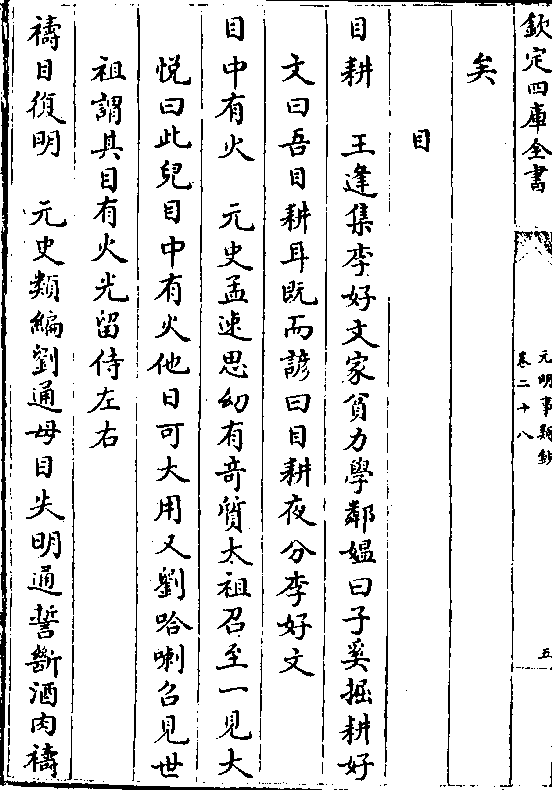 欽定四庫全書
元明事類鈔
卷二十八
五
矣
目
目耕　王逢集李好文家貧力學鄰媪曰子奚掘耕好
文曰吾目耕耳既而諺曰目耕夜分李好文
目中有火　元史孟速思幼有奇質太祖召至一見大
悦曰此兒目中有火他日可大用又劉哈喇召見世
祖謂其目有火光留侍左右
禱目復明　元史類編劉通母目失明通誓斷酒肉禱